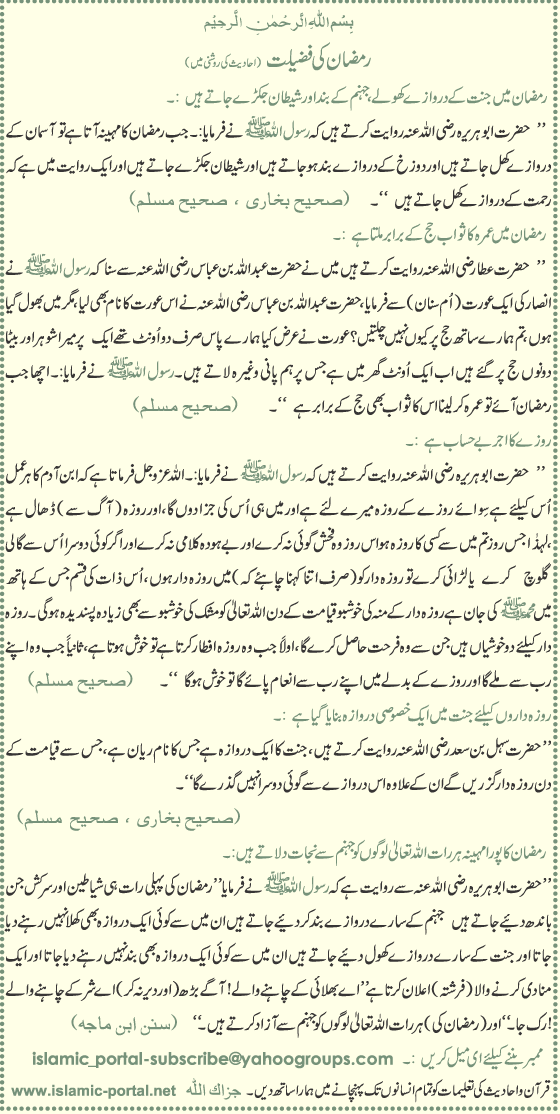 بِسْمِ اللهِ الرَّحْمٰنِ الرَّحِيْمِ
رمضان کی فضیلت (احادیث کی روشنی میں)
رمضان میں جنت کے دروازے کھولے، جہنم کے بند اور شیطان جکڑے جاتے ہیں :۔
’’ حضرت ابو ہریرہ رضی اللہ عنہ روایت کرتے ہیں کہ رسول اللہ ﷺ نے فرمایا:۔ جب رمضان کا مہینہ آتا ہے تو آسمان کے
دروازے کھل جاتے ہیں اور دوزخ کے دروازے بند ہو جاتے ہیں اور شیطان جکڑے جاتے ہیں اور ایک روایت میں ہے کہ
رحمت کے دروازے کھل جاتے ہیں ‘‘۔ (صحیح بخاری ، صحیح مسلم)
رمضان میں عمرہ کا ثواب حج کے برابر ملتا ہے :۔
’’ حضرت عطا رضی اللہ عنہ روایت کرتے ہیں میں نے حضرت عبداللہ بن عباس رضی اللہ عنہ سے سنا کہ رسول اللہ ﷺ نے
انصار کی ایک عورت (اُم سنان) سے فرمایا، حضرت عبداللہ بن عباس رضی اللہ عنہ نے اس عورت کا نام بھی لیا، مگر میں بھول گیا
ہوں، تم ہمارے ساتھ حج پر کیوں نہیں چلتیں؟ عورت نے عرض کیا ہمارے پاس صرف دو اُونٹ تھے ایک پر میرا شوہر اور بیٹا
دونوں حج پر گئے ہیں اب ایک اُونٹ گھر میں ہے جس پر ہم پانی وغیرہ لاتے ہیں۔ رسول اللہ ﷺ نے فرمایا:۔ اچھا جب
رمضان آئے تو عمرہ کر لینا اس کا ثواب بھی حج کے برابر ہے ‘‘۔ (صحیح مسلم)
روزے کا اجر بے حساب ہے :۔
’’ حضرت ابو ہریرہ رضی اللہ عنہ روایت کرتے ہیں کہ رسول اللہ ﷺ نے فرمایا:۔ اللہ عزوجل فرماتا ہے کہ ابن آدم کا ہر عمل
اُس کیلئے ہے سوائے روزے کے روزہ میرے لئے ہے اور میں ہی اُس کی جزا دوں گا، اور روزہ (آگ سے) ڈھال ہے
،لہذا جس روز تم میں سے کسی کا روزہ ہو اس روز وہ فحش گوئی نہ کرے اور بے ہودہ کلامی نہ کرے اور اگر کوئی دوسرا اُس سے گالی
گلوچ کرے یا لڑائی کرے تو روزہ دار کو (صرف اتنا کہنا چاہئے کہ) میں روزہ دار ہوں، اُس ذات کی قسم جس کے ہاتھ
میں محمد ﷺ کی جان ہے روزہ دار کے منہ کی خوشبو قیامت کے دن اللہ تعالیٰ کو مشک کی خوشبو سے بھی زیادہ پسندیدہ ہوگی۔ روزہ
دار کیلئے دو خوشیاں ہیں جن سے وہ فرحت حاصل کرے گا، اولاً جب وہ روزہ افطار کرتا ہے تو خوش ہوتا ہے، ثانیاً جب وہ اپنے
رب سے ملے گا اور روزے کے بدلے میں اپنے رب سے انعام پائے گا تو خوش ہوگا ‘‘۔ (صحیح مسلم)
روزہ داروں کیلئے جنت میں ایک خصوصی دروازہ بنایا گیا ہے :۔
’’حضرت سہل بن سعد رضی اللہ عنہ روایت کرتے ہیں، جنت کا ایک دروازہ ہے جس کا نام ریان ہے، جس سے قیامت کے
دن روزہ دار گزریں گے ان کے علاوہ اس دروازے سے کوئی دوسرا نہیں گذرے گا‘‘۔
(صحیح بخاری ، صحیح مسلم)
رمضان کا پورا مہینہ ہر رات اللہ تعالیٰ لوگوں کو جہنم سے نجات دلاتے ہیں:۔
’’حضرت ابو ہریرہ رضی اللہ عنہ سے روایت ہے کہ رسول اللہ ﷺ نے فرمایا’’ رمضان کی پہلی رات ہی شیاطین اور سرکش جن
باندھ دیئے جاتے ہیں جہنم کے سارے دروازے بند کر دیئے جاتے ہیں ان میں سے کوئی ایک دروازہ بھی کھلا نہیں رہنے دیا
جاتا اور جنت کے سارے دروازے کھول دیئے جاتے ہیں ان میں سے کوئی ایک دروازہ بھی بند نہیں رہنے دیا جاتا اور ایک
منادی کرنے والا (فرشتہ) اعلان کرتا ہے ’’اے بھلائی کے چاہنے والے! آگے بڑھ (اور دیر نہ کر) اے شر کے چاہنے والے
!رک جا۔‘‘ اور (رمضان کی) ہر رات اللہ تعالیٰ لوگوں کو جہنم سے آزاد کرتے ہیں۔‘‘ (سنن ابن ماجہ)
ممبر بننے کیلئے ای میل کریں :۔ islamic_portal-subscribe@yahoogroups.com
قرآن و احادیث کی تعلیمات کو تمام انسانوں تک پہنچانے میں ہمارا ساتھ دیں۔ جزاك الله www.islamic-portal.net